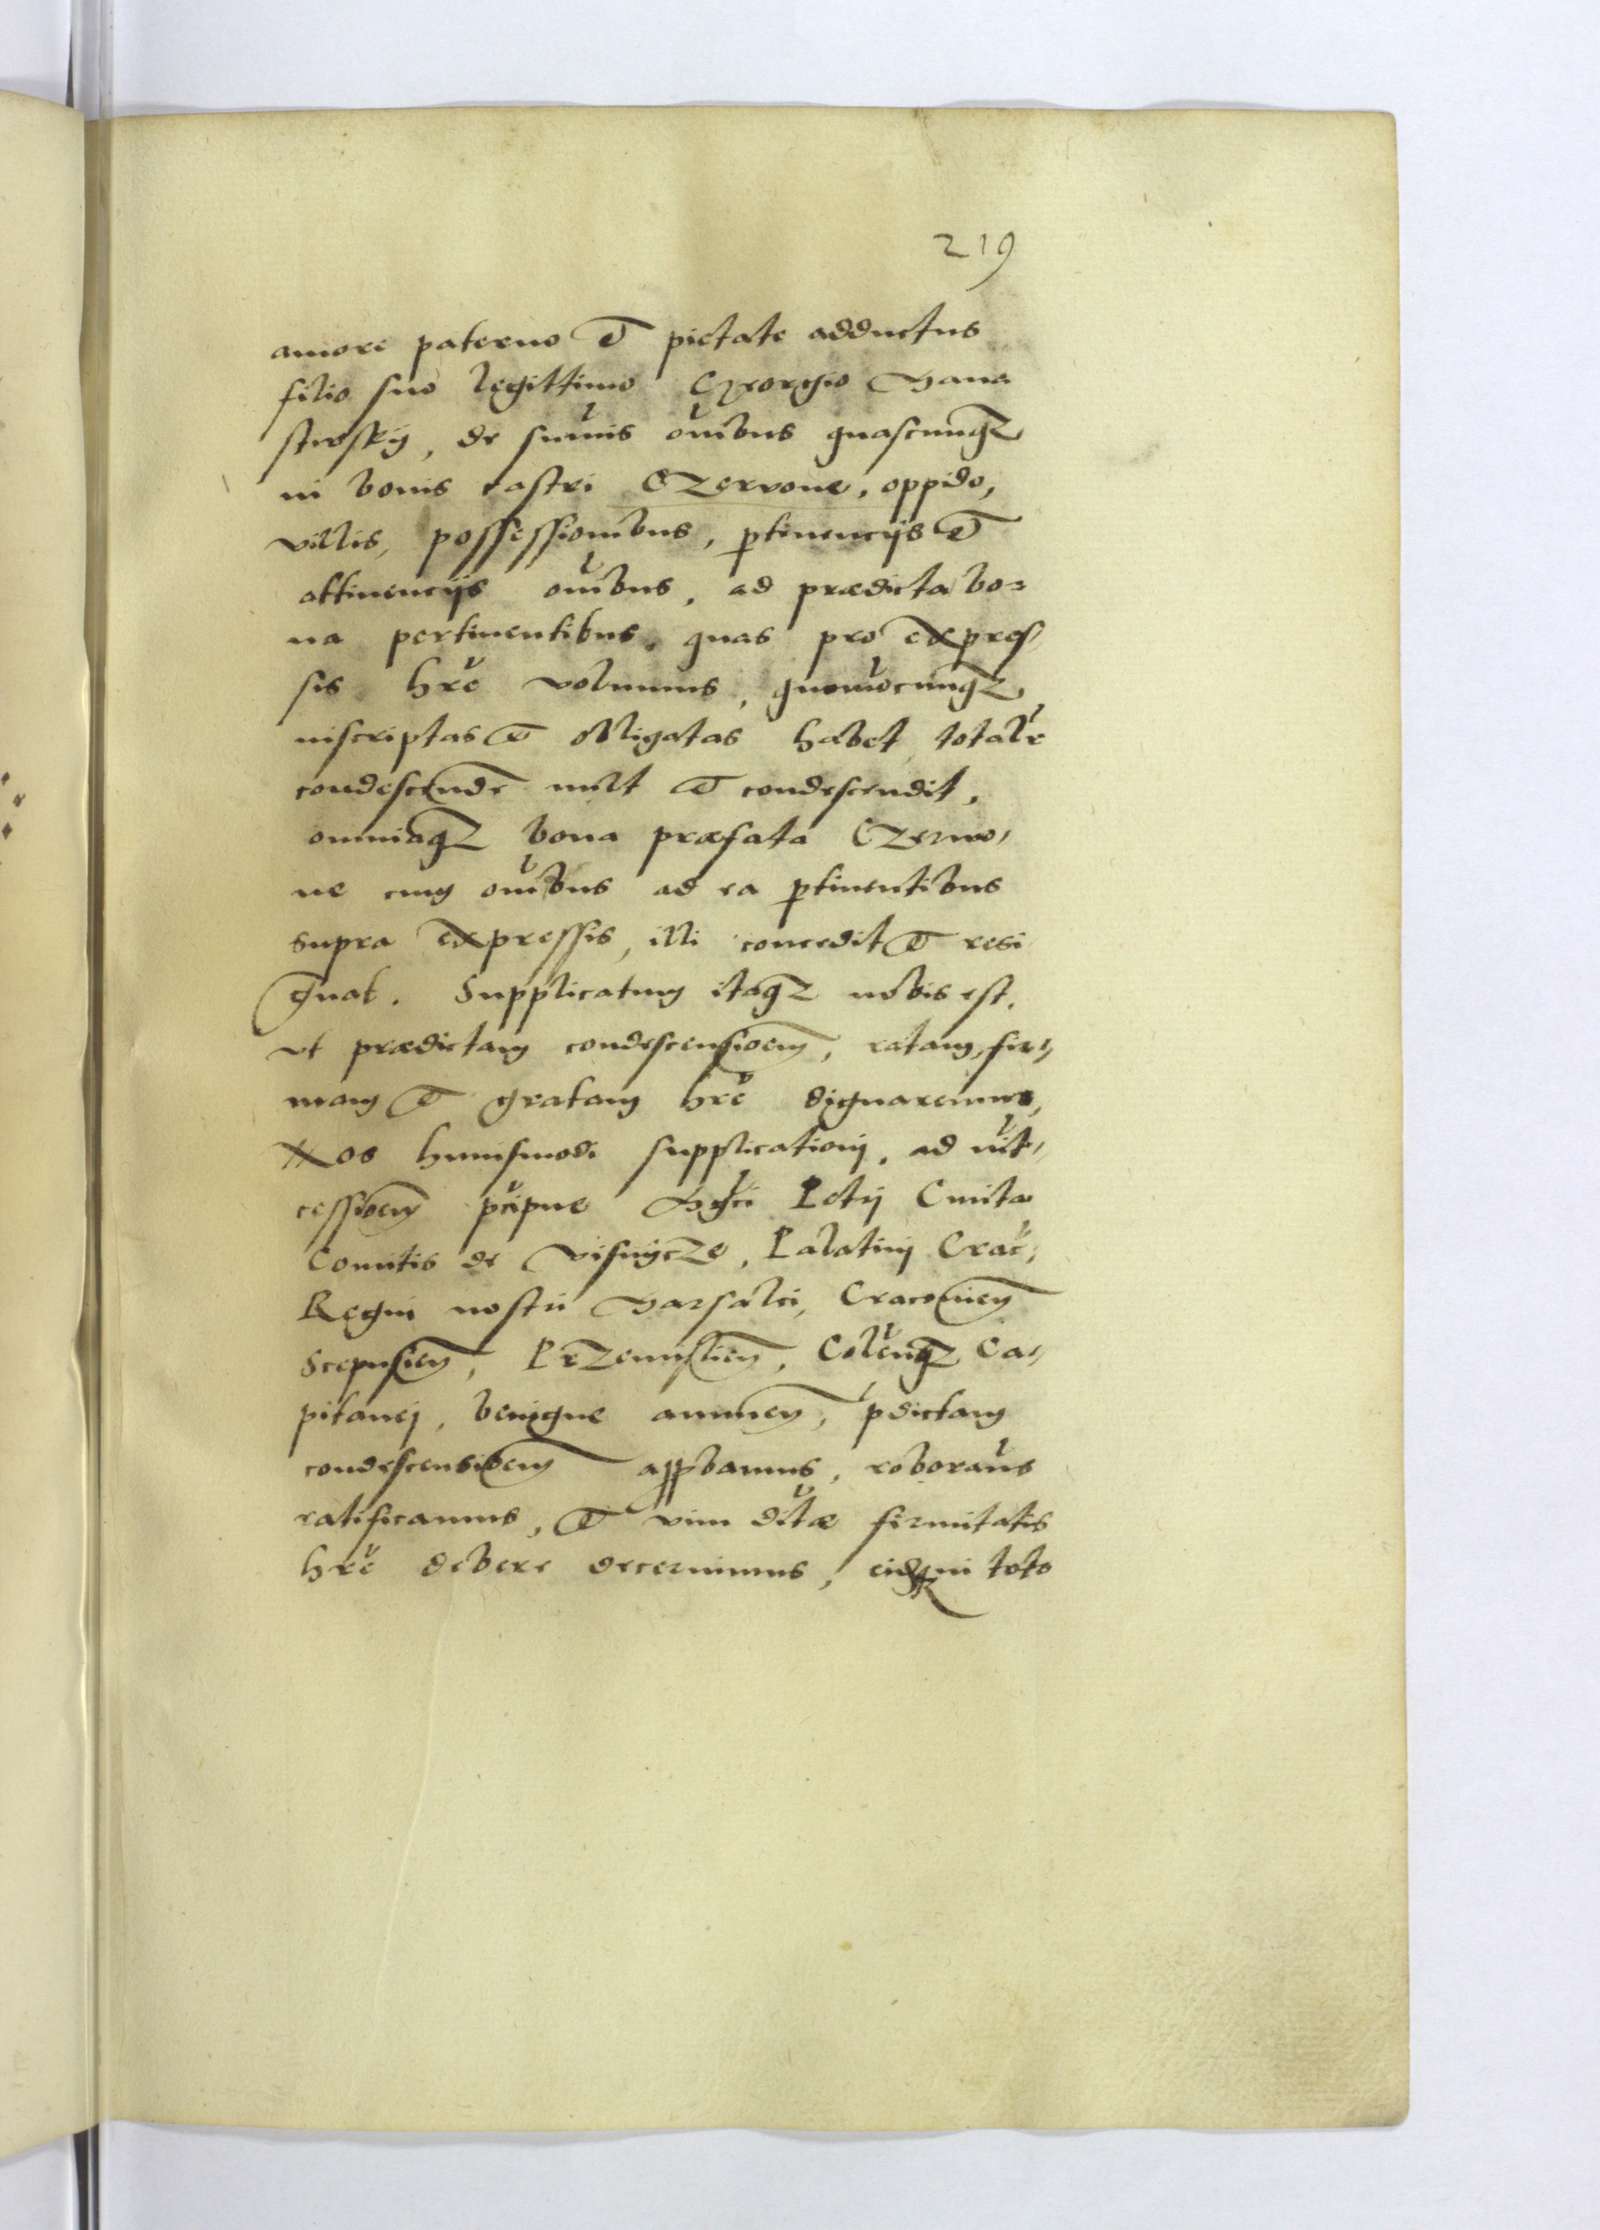 219
amore paterno et pietate adductus
filio suo legittimo Georgio Mana
stwsky, de sum̃is om̃ibus quascunqз
in bonis castri Czerwone, oppido,
villis, possessionibus, ptinencijs et
attinencijs om̃ibus, ad prædicta bo-
na pertinentibus, quas pro expres/
sis hrẽ volumus, quomõcunqз
inscriptas et obligatas habet, totalr̃
condescendẽ vult et condescendit,
omniaqз bona præfata Czerwo,
ne cum om̃ibus ad ea ptinentibus
supra expressis, illi concedit et resi
gnat. Supplicatum itaqз nobis est,
vt prædictam condescensioem̃, ratam, fir,,
mam et gratam hrẽ dignaremur,
Nos huiusmodi supplicationj, ad int̃,,
cessioem̃ pcĩpue Mgc̃i Petrj Cmita
Comitis de Visnycze, Palatinj Crac̃,
Regni nostri Marsalci, Cracovien̄
Scepusien̄, Przemislien̄, Colen̄qз Ca,,
pitanej, benigne annuen̄, p̃dictam
condescensioem̃ appbamus, roboram̃us
ratificamus, et vim dit̃æ firmitatis
hrẽ debere decernimus, eidqз in toto